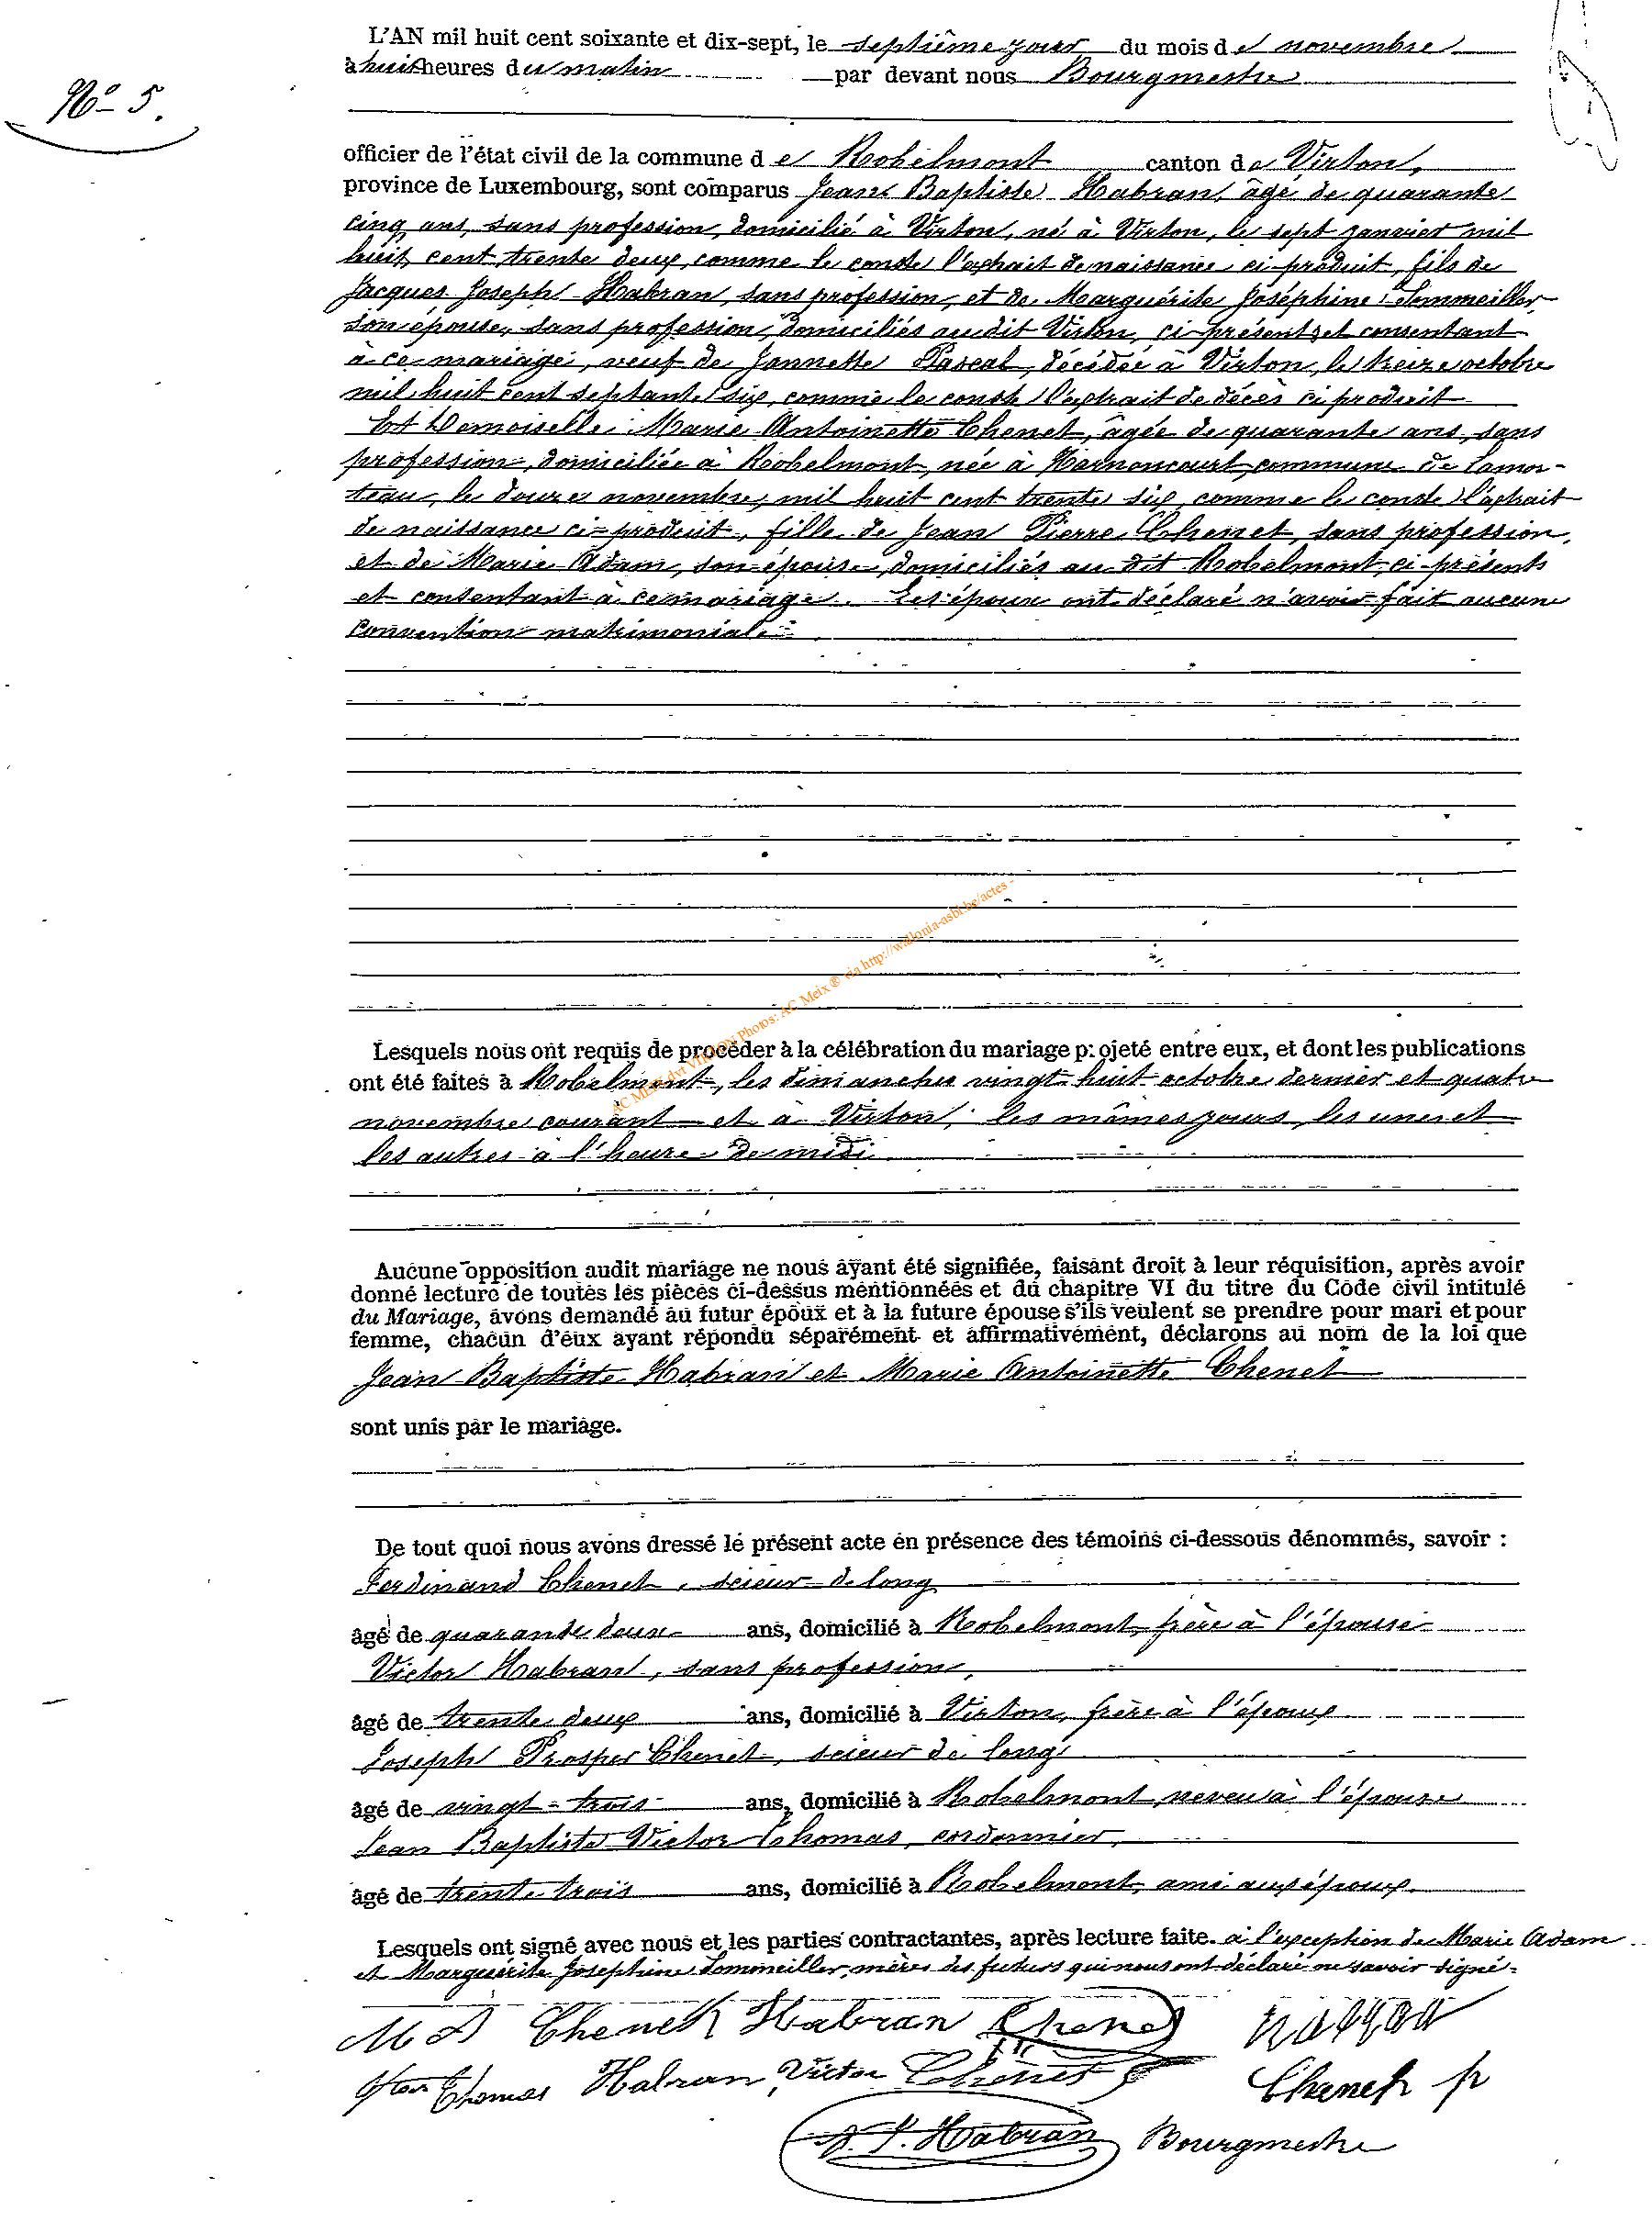 N° 5.
L'AN mil huit cent soixante et dix-sept, le septième jour du mois de novembre
à huit heures du matin par devant nous Bourgmestre
officier de l'état civil de la commune de Robelmont canton de Virton,
province de Luxembourg, sont comparus Jean Baptiste Habran, âgé de quarante
cinq ans, sans profession, domicilié à Virton, né à Virton, le sept janvier mil
huit cent trente deux, comme le conste l'extrait de naissance ci-produit, fils de
Jacques Joseph Habran, sans profession, et de Marguérite Joséphine Sommeiller,
son épouse, sans profession, domiciliés audit Virton, ci-présents et consentant
à ce mariage, veuf de Jannette Pascal, décédée à Virton, le treize octobre
mil huit cent septante six, comme le conste l'extrait de décès ci produit
Et Demoiselle Marie Antoinette Chenet, âgée de quarante ans, sans
profession, domiciliée à Robelmont, née à Harnoncourt, commune de Lamor-
teau, le douze novembre, mil huit cent trente six, comme le conste l'extrait
de naissance ci-produit, fille de Jean Pierre Chenet, sans profession,
et de Marie Adam, son épouse, domiciliés au dit Robelmont, ci-présents
et consentant à ce mariage. Les époux ont déclaré n'avoir fait aucune
convention matrimoniale
AC MEIX dvt VIRTON Photos: AC Meix ® via http://wallonia-asbl.be/actes -
Lesquels nous ont requis de procéder à la célébration du mariage projeté entre eux, et dont les publications
ont été faites à Robelmont, les dimanches vingt huit octobre dernier et quatre
novembre courant et à Virton, les mêmes jours, les unes et
les autres à l'heure de midi
Aucune opposition audit mariage ne nous ayant été signifiée, faisant droit à leur réquisition, après avoir
donné lecture de toutes les pièces ci-dessus mentionnées et du chapitre VI du titre du Code civil intitulé
du Mariage, avons demandé au futur époux et à la future épouse s'ils veulent se prendre pour mari et pour
femme, chacun d'eux ayant répondu séparément et affirmativement, déclarons au nom de la loi que
Jean Baptiste Habran et Marie Antoinette Chenet
sont unis par le mariage.
De tout quoi nous avons dressé le présent acte en présence des témoins ci-dessous dénommés, savoir :
Ferdinand Chenet, scieur de long
âgé de quarante deux ans, domicilié à Robelmont, frère à l'épouse
Victor Habran, sans profession,
âgé de trente deux ans, domicilié à Virton, frère à l'époux
Joseph Prosper Chenet, scieur de long
âgé de vingt-trois ans, domicilié à Robelmont, neveu à l'épouse
Jean Baptiste Victor Thomas, cordonnier,
âgé de trente trois ans, domicilié à Robelmont, ami aux époux.
Lesquels ont signé avec nous et les parties contractantes, après lecture faite. à l'exception de Marie Adam
et Marguérite Joséphine Sommeiller, mères des futurs qui nous ont déclaré ne savoir signé.
M A Chenet Habran Chenet
Thomas Habran Victor Chenet Chenet p
Habran Bourgmestre